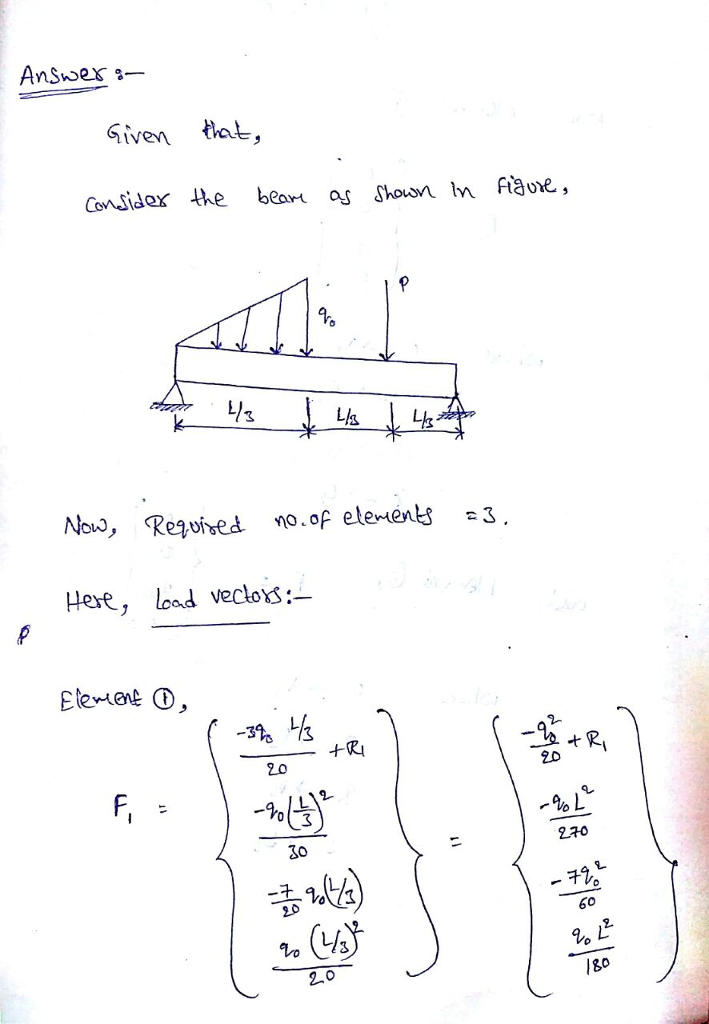 Answer :-
Given that,
Consider the beam as shown in figure,
P
q₀
L/3 L/3 L/3
Now, Required no. of elements = 3.
Here, load vectors:-
P
Element ①,
F₁ = { (-3q₀ L/3)/20 + R₁ } = { -q₀²/20 + R₁ }
{ -q₀(L/3)²/30 } { -q₀L²/270 }
{ -7/20 q₀(L/3) } { -7q₀²/60 }
{ q₀(L/3)²/20 } { q₀L²/180 }